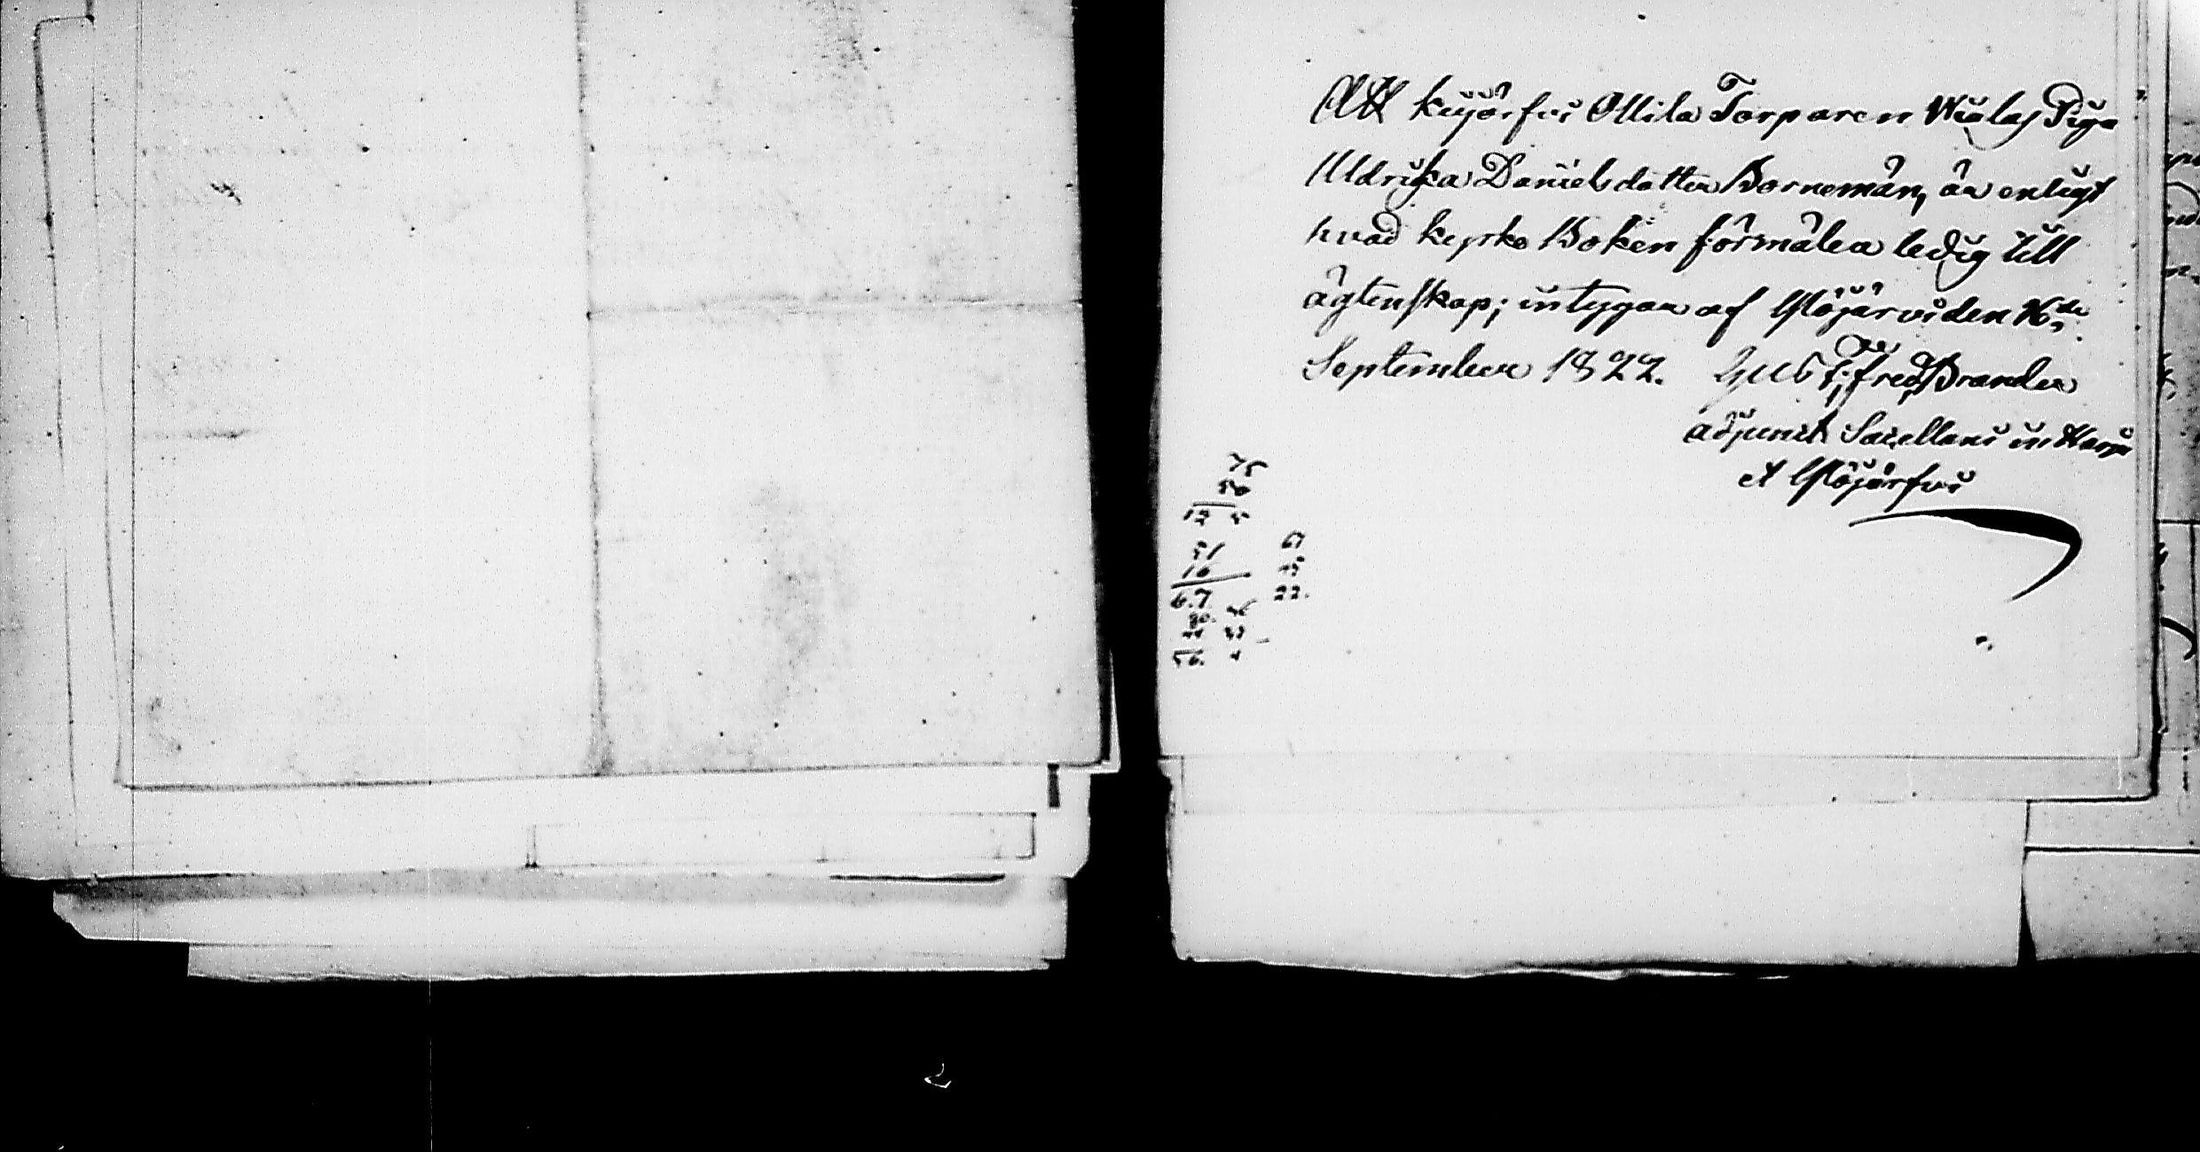 Att kyjörfvi Ollila Torparen Wiolas Piga
Uldrika Danielsdotter Borneman, är enligt
hvad kyrko Boken förmäler ledig till
ägtenskap; intygar af Ylöjärvi den 16de
September 1822. Gust: Fred: Brander
adjunct Sacellani in
et Ylöjärfvi
75
50
12 5
51
16
67
67
45
22.